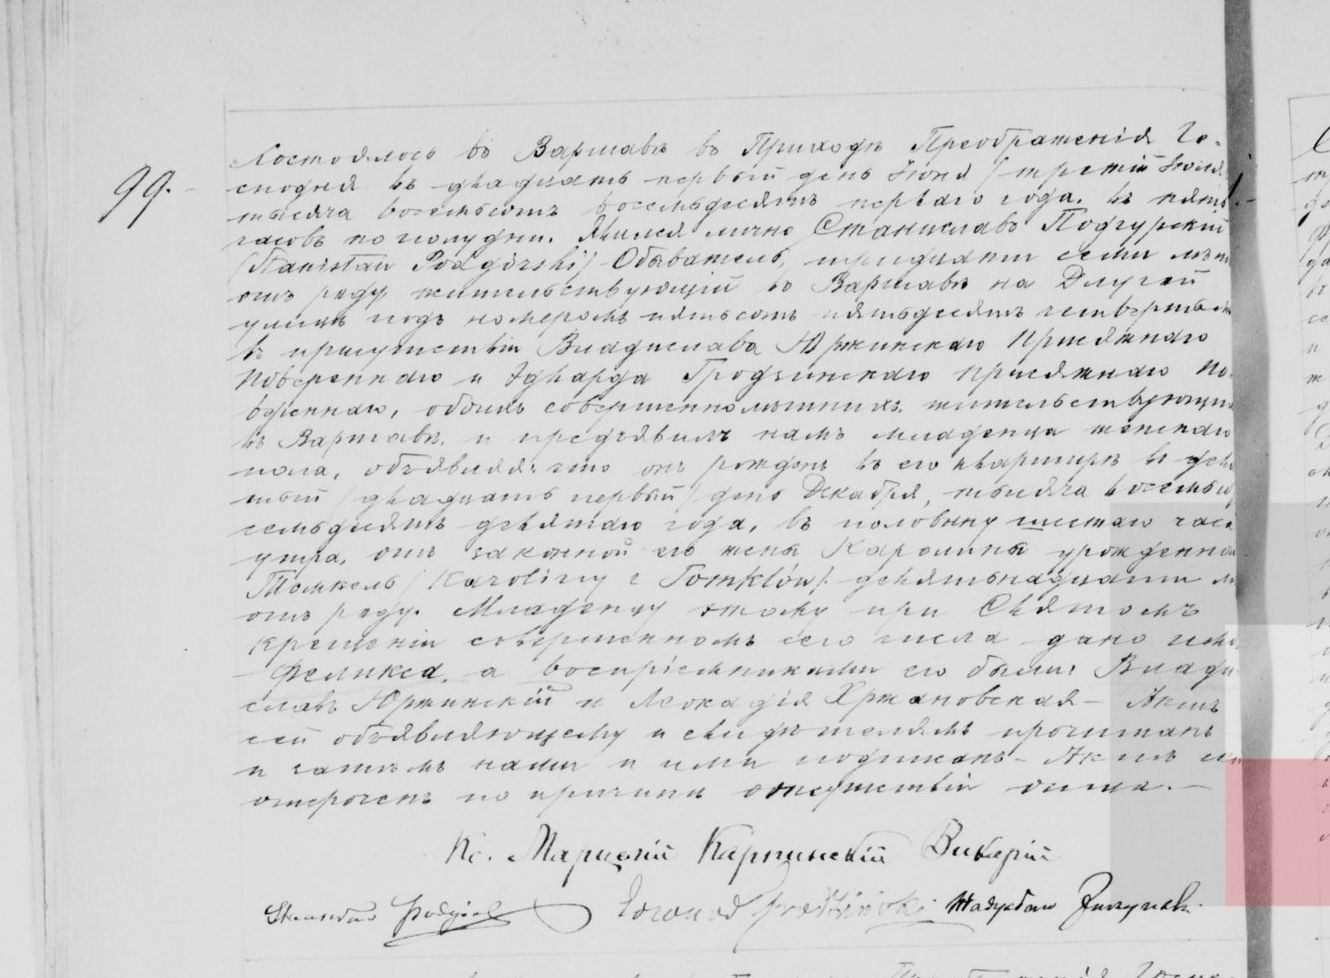 99.
Состоялось въ Варшавѣ въ Приходѣ Преображенія Го-
сподня въ двадцать первый день Іюня /третій Іюля/
тысяча восемьсотъ восемьдесятъ перваго года, въ пять
часовъ по полудни. Явился лично Станиславъ Подгурскій
/Stanisław Podgórski/ Обыватель, тридцати семи лѣтъ
отъ роду жительствующій въ Варшавѣ на Длугой
улицѣ подъ номеромъ пятьсотъ пятьдесятъ четвертымъ
въ присутствіи Владислава Юржинскаго Присяжнаго
Повѣреннаго и Эдварда Гродзинскаго Присяжнаго По-
вѣреннаго, обоихъ совершеннолѣтнихъ, жительствующихъ
въ Варшавѣ, и предъявилъ намъ младенца женскаго
пола, объявляя, что онъ рожденъ въ его квартирѣ въ девя
тый /двадцать первый/ день Декабря, тысяча восемьсотъ
семьдесятъ девятаго года, въ половину шестаго часа
утра, отъ законной его жены Каролины урожденной
Томкель /Karoliny z Tomklów/ девятьнадцати лѣтъ
отъ роду. Младенцу этому при Святомъ
крещеніи совершенномъ сего числа дано имя
Феликса, а воспріемниками его были: Влади-
славъ Юржинскій и Леокадія Хржановская – Актъ
сей объявляющему и свидѣтелямъ прочитанъ
и затѣмъ нами и ими подписанъ – Актъ сей
отсроченъ по причинѣ отсутствія отца. –
Кс. Марцелій Карпинскій Викарій
Stanisław Podgórski Edward Grodziński Władysław